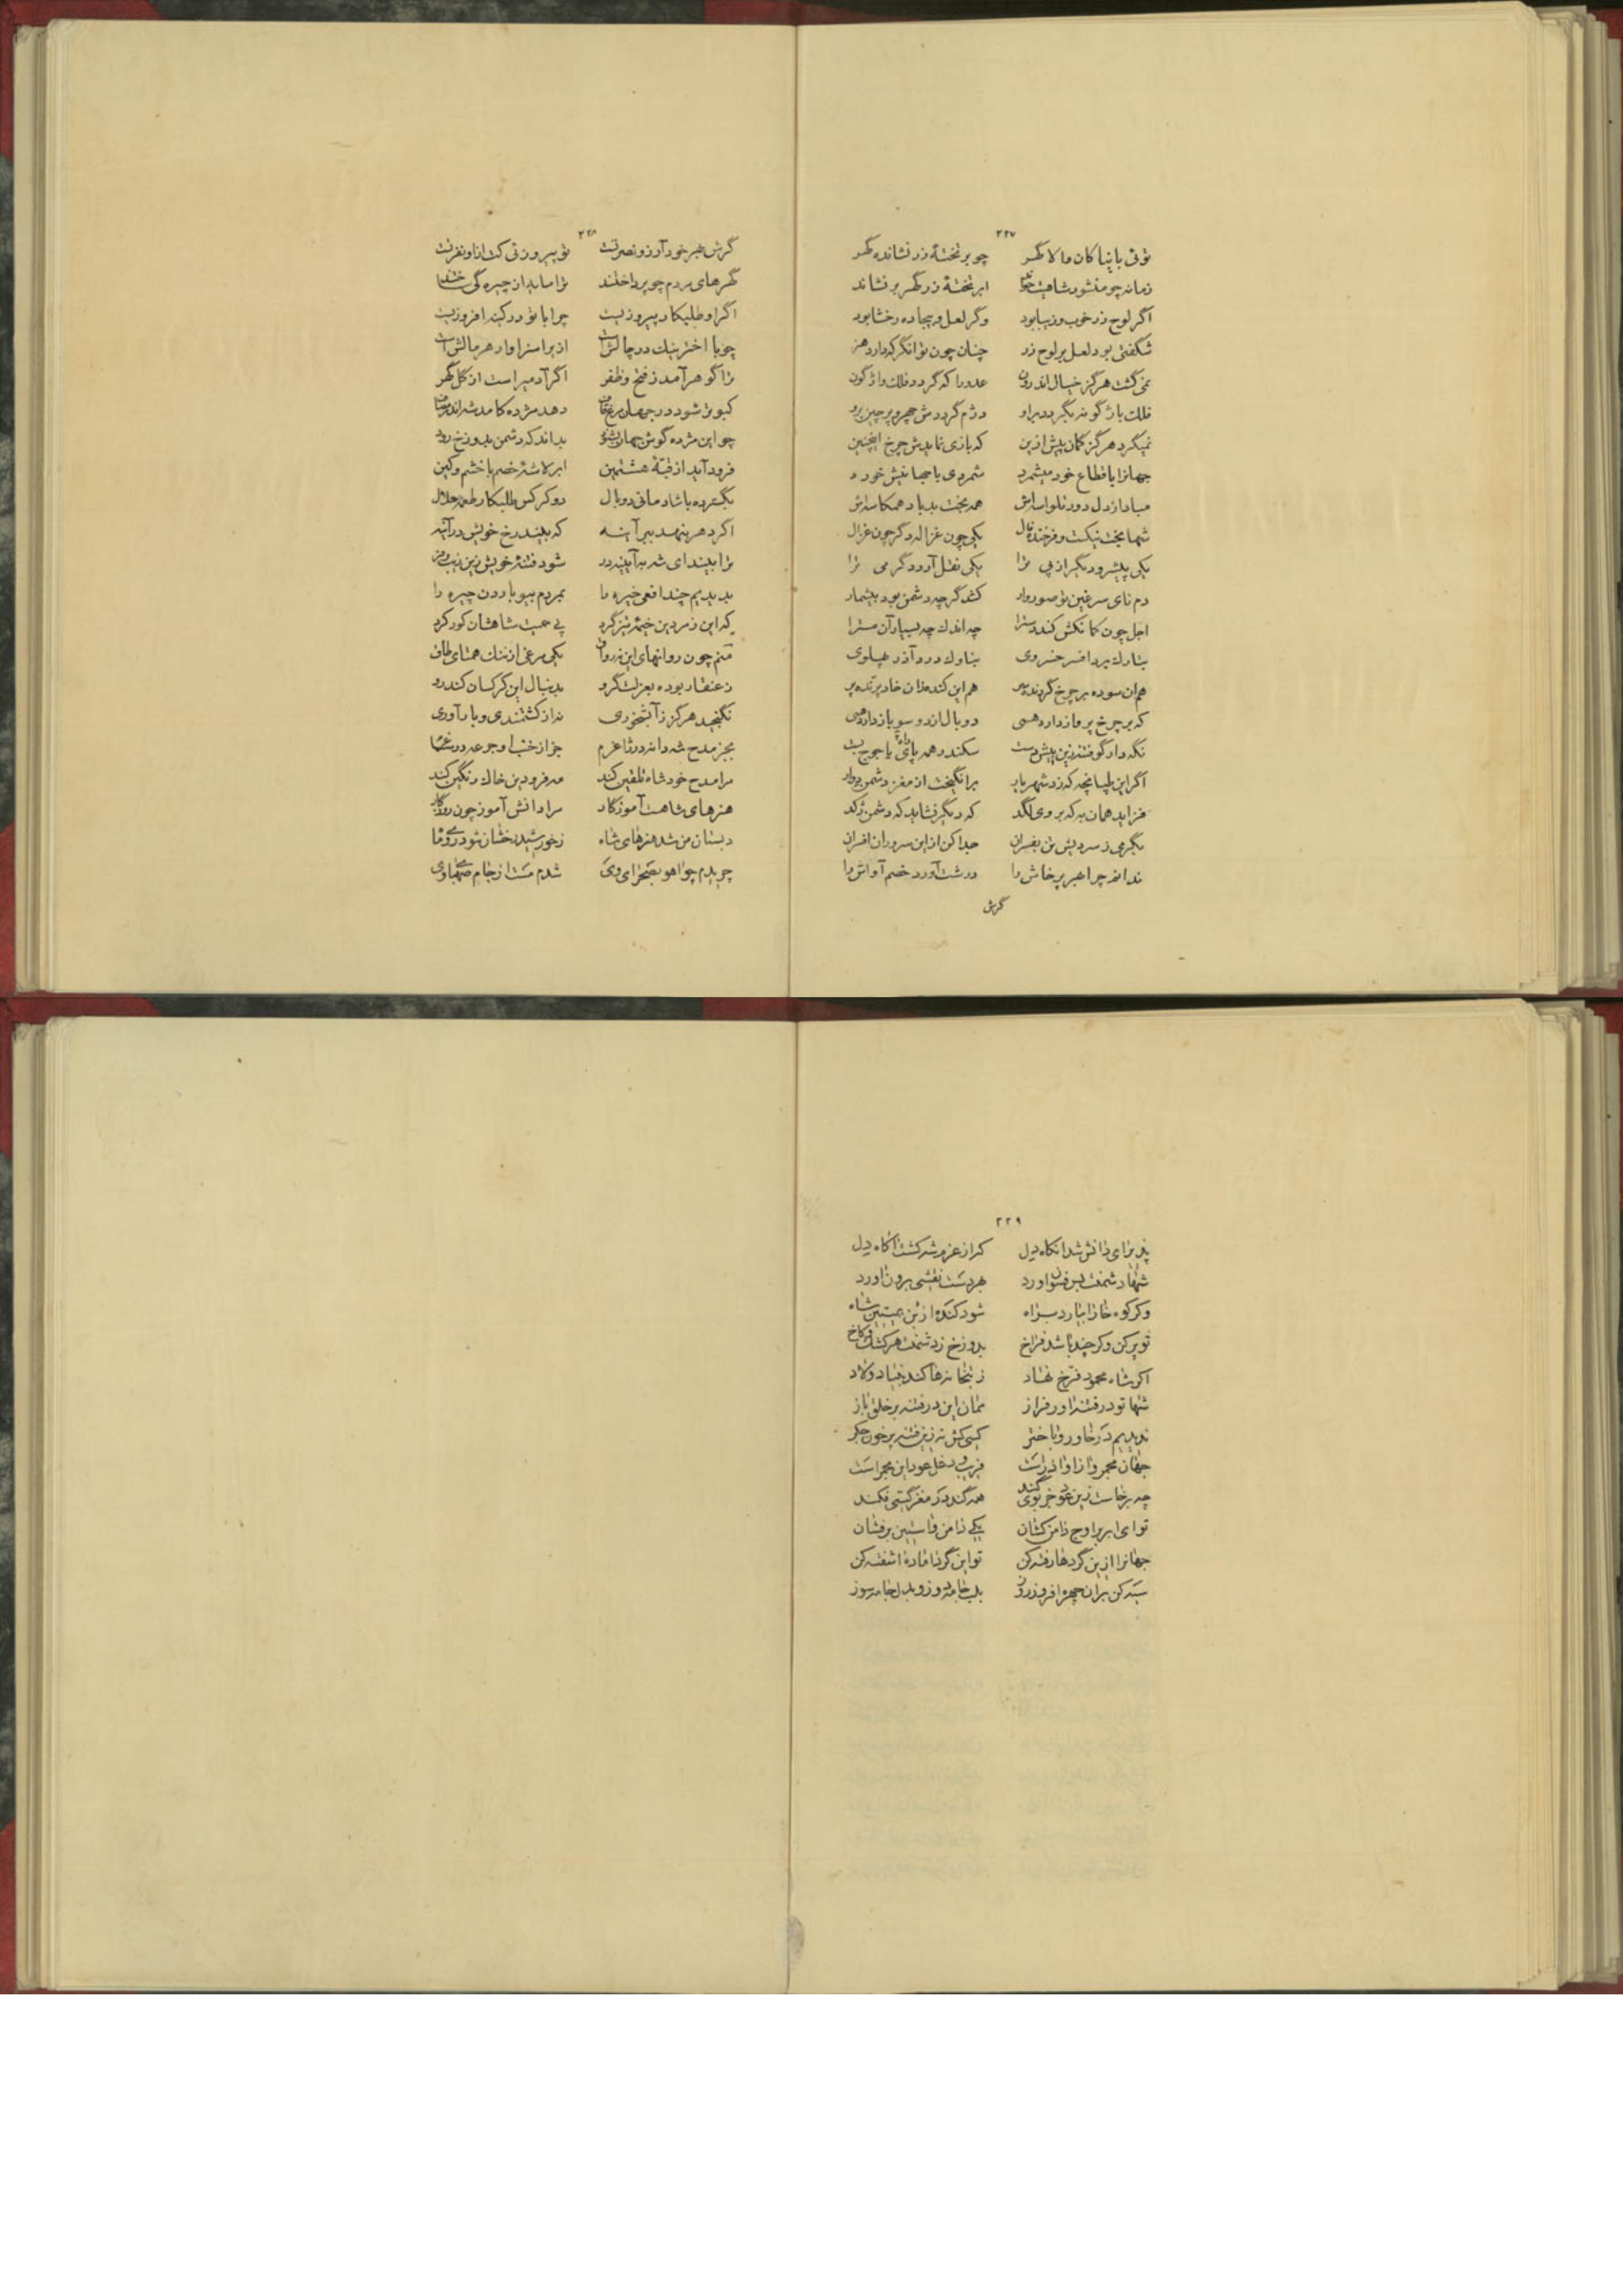 ۲۲۷
توئی با نیاکان والا گهر چو بر تختهٔ زر نشانده گهر
زمانه چو منشور شاهیت خواند ابر تختهٔ زر گهر بر نشاند
اگر لوح زر خوب و زیبا بود وگر لعل و بیجاده رخشا بود
شگفتی بود لعل بر لوح زر چنان چون توانگر که دارد هنر
نمی گشت هرگز خیال اندرون عدو را که گردد فلک واژگون
فلک باژگونه بگردد براو دژم گرددش چهر و پرچین برو
نمیکرد هرگز گمان پیش ازین که بازی نمایدش چرخ اینچنین
جهانرا باقطاع خود میشمرد شمردی با خود
مبادا ز دل دور همه بخت بد باد همکاسه اش
شها بخت نیکت و فرخنده فال یکی چون غزاله دگر چون غزال
یکی پیشرو دیگر از پی ترا یکی نقل آرد دگر می ترا
دم نای سرغین تو صوروار کشد گرچه دشمن بود بیشمار
اجل چون کمانکش کند چه اندک چه بسیار آن
بتارک برد افسر خسروی بناوک درد آذر پهلوی
همان سوده بر چرخ گردنده سر هم این کنده زان خاد پرنده پر
که بر چرخ پرواز دارد همی دو بال از دو سو باز دارد همی
نگه دار گو فتنه زین پیش دست سکندر همه پای یاجوج بست
اگر این طپانچه که زد شهریار برانگیخت از مغز دشمن
فزاید همان به که بر وی لگد که دیگر نشاید که دشمن ژکد
بگرمی ز سردیش تن بفسران جدا کن از این سروران افسران
نداند چرا هیر پرخاش را درشت آورد خصم آواش را
گرش
۲۲۸
گرش خیر خود آرزو نصرتست تو پیروزئی کت ازو نفرتست
گهرهای مردم چو پرداختند ترا مایه از چیره گی ساختند
اگر او طلبکار پیروزیست چرا با تو در کینه افروزیست
چو با اختر نیک در چالش است ازیرا سزاوار هر مالش است
ترا گوهر آمد ز فتح و ظفر اگر آدمیراست از گل گهر
کبوتر شود در جهان مرغ دهد مژده کامد شه اندر
چو این مژده گوش جهان بشنود بداند که دشمن بدوزخ رود
فرود آید از قبهٔ هشتمین ابر لاشهٔ خصم با خشم و کین
بگسترده با شادمانی دو بال دو کرکس طلبکار طعمه حلال
اگر دهر بنهد ببر آینه که بیند رخ خویش در آینه
ترا بیند ای شه به آیینه در شود فتنهٔ خویش زین زیب و فر
بدیدیم چند افعی خیره را بمردم بیوباردن چیره را
که این زمردین خیمهٔ تیزگرد پی جمیت شاهشان کور کرد
منم چون روانهای این نه رواق یکی مرغی از ننگ همتای طاق
ز عنقا ربوده بعزلت گرو بدنبال این کرکسان کندرو
نگنجید هرگز ز آبشخوری نه از کشتمندی و بار آوری
بجز مدح شه دانه در جز از ختب او جرعه در
مرا مدح خود شاه تلقین کند مه فرودین خاک رنگین کند
هنرهای شاهت آموزگار مرا دانش آموز چون روزگار
دبستان من شد هنرهای شاه ز خورشید رخشان شود
چریدم چو آهو بصحرای وی شدم مست از جام صهبای وی
۲۲۹
پذیرای دانش شد آنگاه دل که از عزم شه گشت آگاه دل
شها دشمنت بس فسون آورد بهر دست نقشی برون آورد
وگر کوه خارا بیارد براه شود کنده از بن شاه
تو پر کن وگر چند باشد فراخ بدوزخ ز دشمنت هر کشک و کاخ
اگر شاه محمود فرخ نهاد ز بتخانه ها کند بنیاد و لاد
شها تو در فتنه آور فراز ممان این در فتنه بر خلق باز
ندیدیم در خاور و باختر کسی کش نه زین فتنه پر خون جگر
جهان مجمر و از او آذر است فریب و دغل عود این مجمر است
چه برخاست زین عود جز بوی گند همه گند در مغز گیتی فکند
توای ابر بر اوج دامن کشان یکی دامن و آستین برفشان
جهانرا ازین گردها رفته کن تو این گرد آماده آشفته کن
سیه کن بر آن چهره افروز روز بلب جامه دوز و بدل جامه سوز